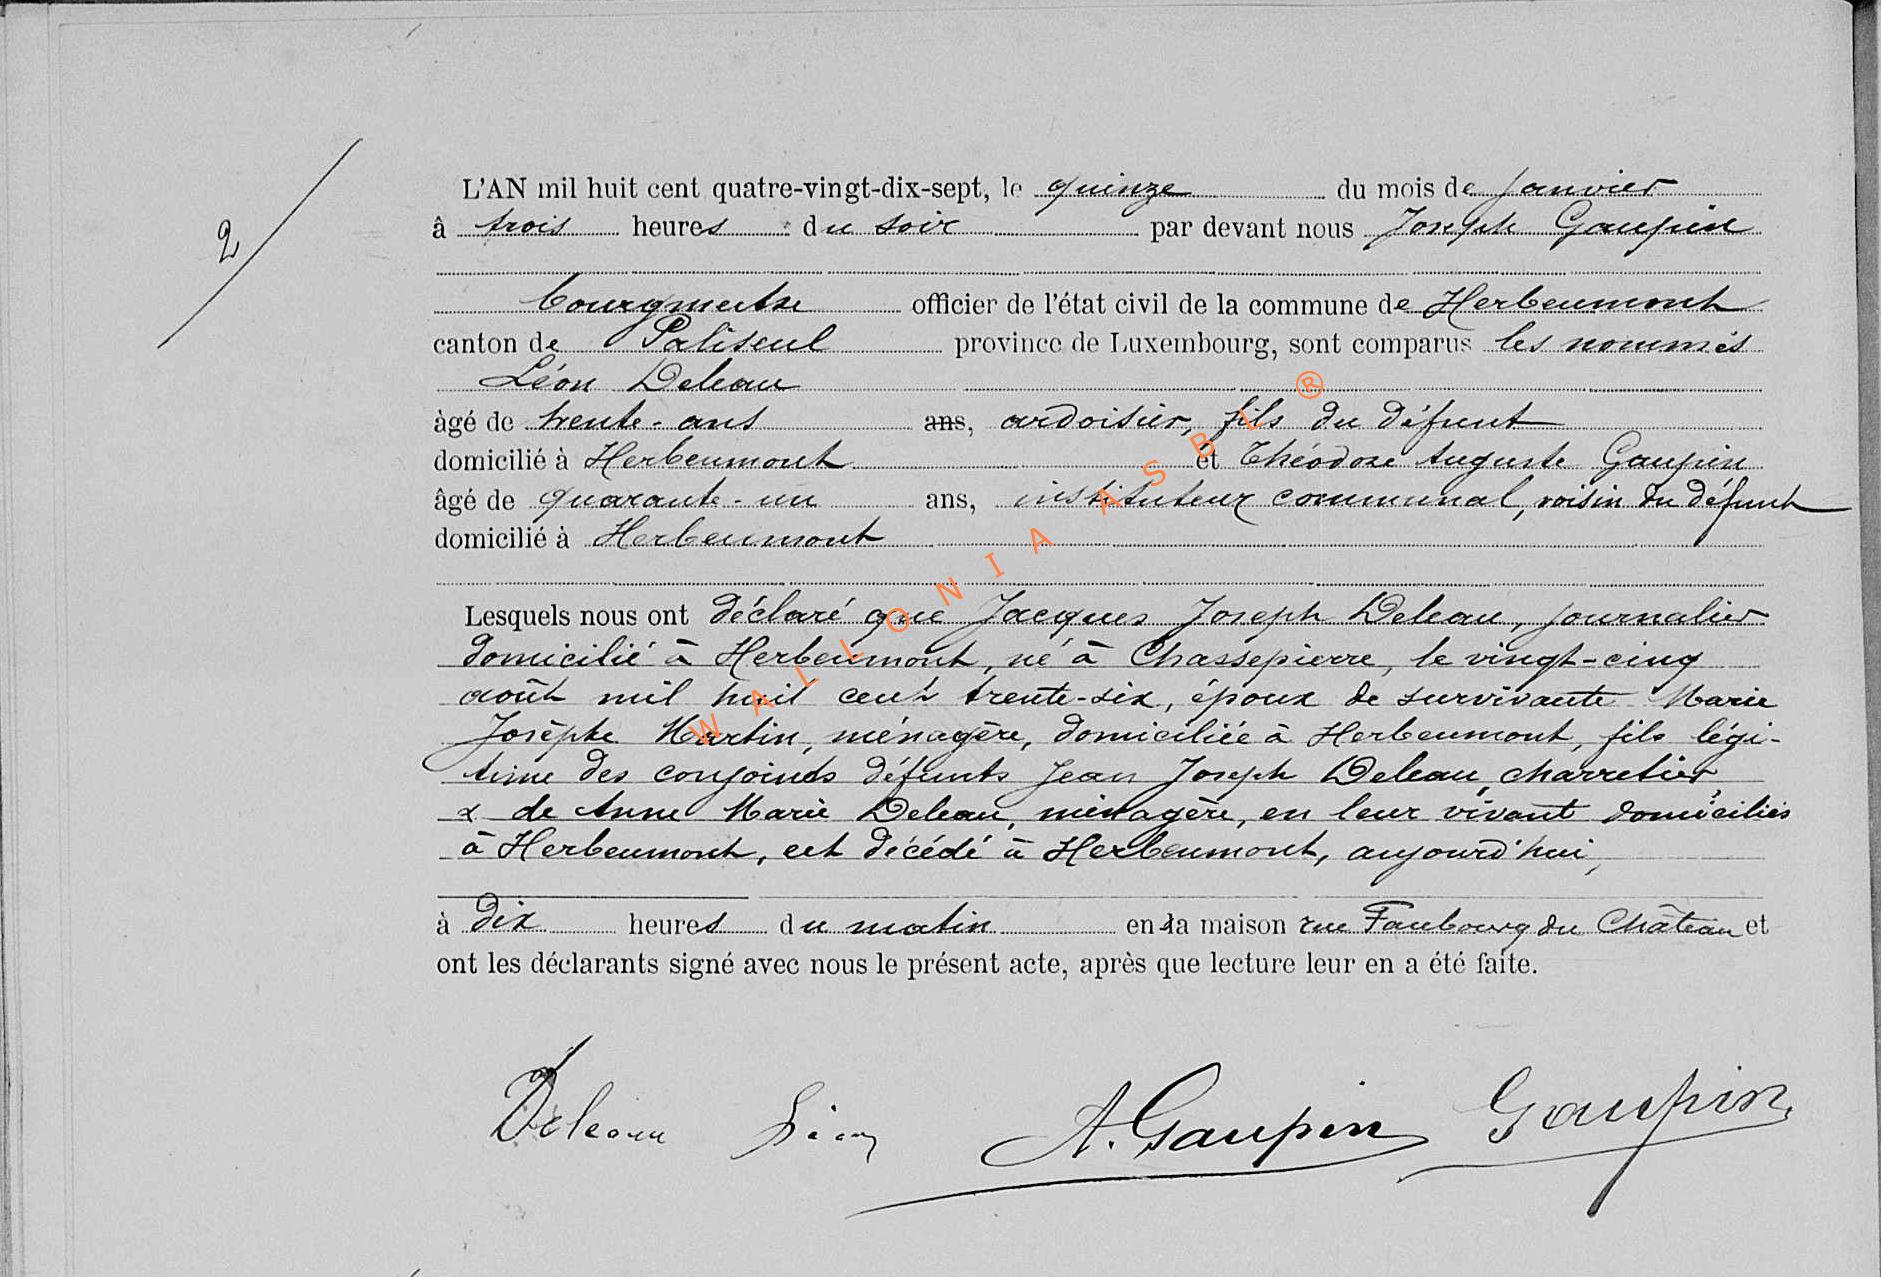 2
L'AN mil huit cent quatre-vingt-dix-sept, le quinze du mois de janvier
à trois heures du soir par devant nous Joseph Gaupin
bourgmestre officier de l'état civil de la commune de Herbeumont
canton de Paliseul province de Luxembourg, sont comparus les nommés
Léon Deleau
âgé de trente-ans ans, ardoisier, fils du défunt
domicilié à Herbeumont et Théodore Auguste Gaupin
âgé de quarante-un ans, instituteur communal, voisin du défunt
domicilié à Herbeumont
Lesquels nous ont déclaré que Jacques Joseph Deleau, journalier
domicilié à Herbeumont, né à Chassepierre, le vingt-cinq
août mil huit cent trente-six, époux de survivante Marie
Josèphe Martin, ménagère, domiciliée à Herbeumont, fils légi-
time des conjoints défunts Jean Joseph Deleau, charretier,
& de Anne Marie Deleau, ménagère, en leur vivant domiciliés
à Herbeumont, est décédé à Herbeumont, aujourd'hui,
à dix heures du matin en sa maison rue Faubourg du Château et
ont les déclarants signé avec nous le présent acte, après que lecture leur en a été faite.
Deleau Léon A. Gaupin Gaupin
WALLONIA ASBL ®